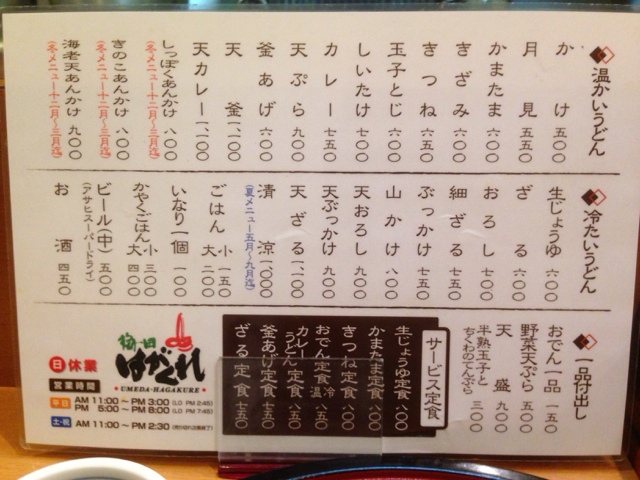 温かいうどん
かけ 五〇〇
月見 五五〇
かまたま 六〇〇
きざみ 六〇〇
きつね 六五〇
玉子とじ 六〇〇
しいたけ 七〇〇
カレー 七五〇
天ぷら 九〇〇
釜あげ 六〇〇
天釜 一、一〇〇
天カレー 一、一〇〇
しっぽくあんかけ 八〇〇
(冬メニュー十二月〜三月迄)
きのこあんかけ 八〇〇
(冬メニュー十二月〜三月迄)
海老天あんかけ 九〇〇
(冬メニュー十二月〜三月迄)
冷たいうどん
生じょうゆ 六〇〇
ざる 六〇〇
おろし 七〇〇
細ざる 七五〇
ぶっかけ 七五〇
山かけ 八〇〇
天おろし 九〇〇
天ぶっかけ 九〇〇
天ざる 一、一〇〇
清涼 一、〇〇〇
(夏メニュー五月〜九月迄)
ごはん 小 一五〇
大 二〇〇
いなり一個 一〇〇
かやくごはん 小 三〇〇
大 四〇〇
ビール(中) 五〇〇
(アサヒスーパードライ)
お酒 四五〇
一品付出し
おでん一品 一五〇
野菜天ぷら 五〇〇
天盛 九〇〇
半熟玉子と
ちくわのてんぷら 三〇〇
サービス定食
生じょうゆ定食 八〇〇
かまたま定食 八〇〇
きつね定食 八〇〇
おでん定食 冷温 八五〇
カレーうどん定食 八五〇
釜あげ定食 七五〇
ざる定食 七五〇
梅田
はがくれ
UMEDA-HAGAKURE
日 休業
営業時間
平日 AM 11:00〜PM 3:00 (LO PM 2:45)
PM 5:00〜PM 8:00 (LO PM 7:45)
土・祝 AM 11:00〜PM 2:30 (売り切れ次第終了)